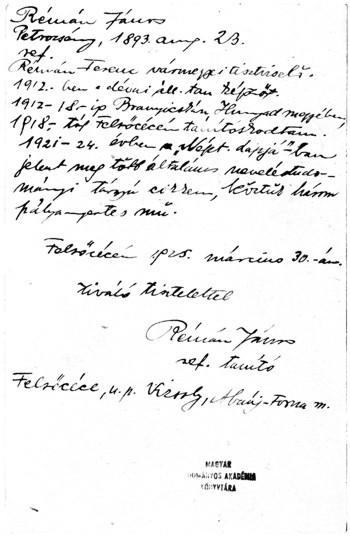 Rémán János
Petrozsény, 1893. aug. 23.
ref.
Rémán Ferenc vármegyei tisztviselő.
1912. ben a dévai áll. tan. képzőt.
1912-18-ig Branyicskán, Hunyad megyében,
1918-tól Felsőcécén tanítóskodtam.
1921-24. évben a "Népt. Lapja"-ban
jelent meg több általános neveléstudo-
mányi tárgyú cikkem, köztük három
pályanyertes mű.
Felsőcécén 1925. március 30.-án.
Kiváló tisztelettel
Rémán János
ref. tanító
Felsőcéce, u. p. Vizsoly, Abaúj-Torna m.
MAGYAR
TUDOMÁNYOS AKADÉMIA
KÖNYVTÁRA